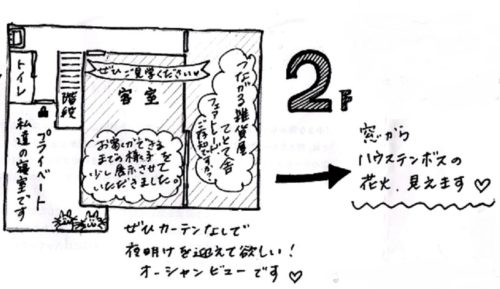 トイレ
階段
プライベート
私達の寝室です
ぜひご見学ください♡
客室
お客さまができるまでの様子を
少し展示させて
いただきました。
つながる雑貨屋
てとて舎
フェアトレード
ご存知ですか?
2F
窓から
ハウステンボスの
花火、見えます♡
ぜひカーテンなしで
夜明けを迎えて欲しい!
オーシャンビューです♡